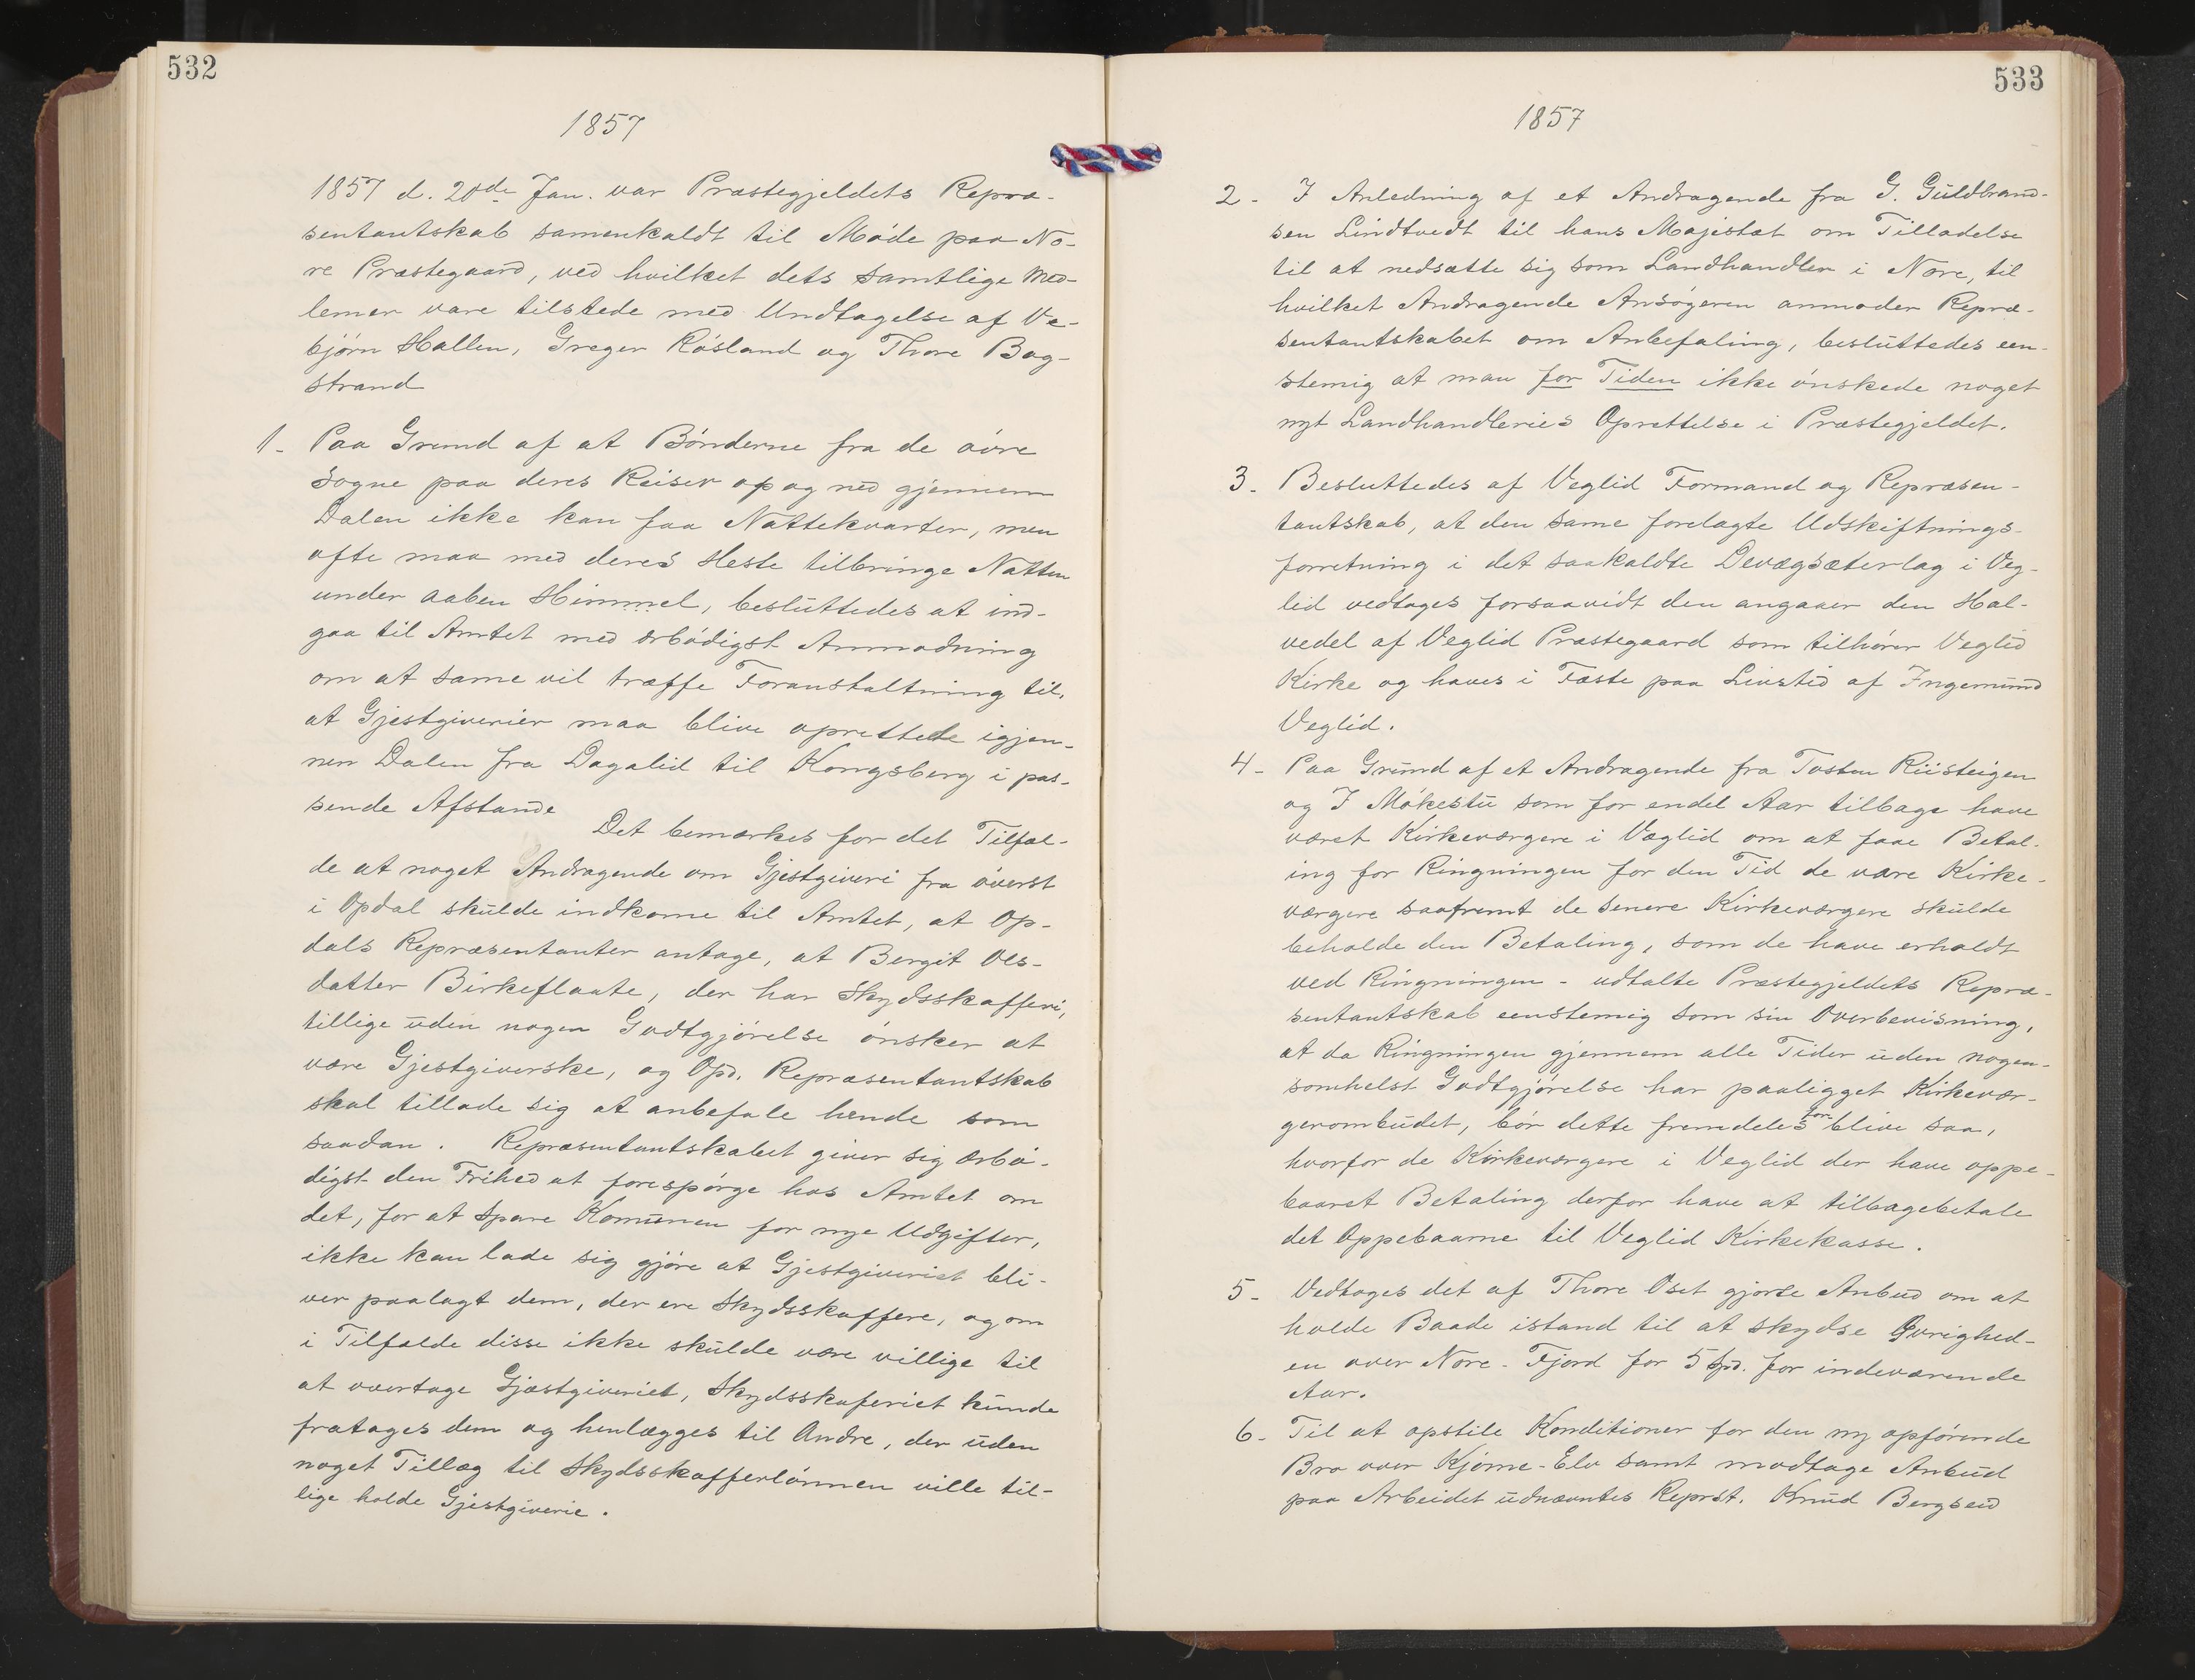 532
1857
1857 d. 20de Jan. var Præstegjeldets Repræ-
sentantskab samenkaldt til Møde paa No-
re Præstegaard, ved hvilket dets samtlige Med-
lemer vare tilstede med Undtagelse af Ve-
bjørn Hallen, Greger Røsland og Thore Bog-
strand
1- Paa Grund af at Bønderne fra de øvre
Sogne paa deres Reiser op og ned gjennem
Dalen ikke kan faa Nattekvarter, men
ofte maa med deres Heste tilbringe Natten
under aaben Himmel, besluttedes at ind-
gaa til Amtet med ærbødigst Anmodning
om at same vil træffe Foranstaltning til,
at Gjestgiverier maa blive oprettede igjen-
nem Dalen fra Dagalid til Kongsberg i pas-
sende Afstande
Det bemærkes for det Tilfæl-
de at noget Andragende om Gjestgiveri fra øverst
i Opdal skulde indkome til Amtet, at Op-
dals Repræsentanter antage, at Bergit Ols-
datter Birkeflaate, der har Skydsskafferi,
tillige uden nogen Godtgjørelse ønsker at
være Gjestgiverske, og Opd. Repræsentantskab
skal tillade sig at anbefale hende som
saadan. Repræsentantskabet giver sig ærbø-
digst den Frihed at forespørge hos Amtet om
det, for at spare Komunen for nye Udgifter,
ikke kan lade sig gjøre at Gjestgiveriet bli-
ver paalagt dem, der ere Skydsskaffere, og om
i Tilfælde disse ikke skulde være villige til
at overtage Gjæstgiveriet, Skydsskaferiet kunde
fratages dem og henlægges til Andre, der uden
noget Tillæg til Skydsskafferlønnen ville til-
lige holde Gjestgiverie.
533
1857
2- I Anledning af et Andragende fra G. Guldbrand-
sen Lindtvedt til hans Majestæt om Tilladelse
til at nedsætte sig som Landhandler i Nore, til
hvilket Andragende Ansøgeren anmoder Repræ-
sentantskabet om Anbefaling, besluttedes een-
stemig at man for Tiden ikke ønskede noget
nyt Landhandleries Oprettelse i Præstegjeldet.
3- Besluttedes af Veglid Formand og Repræsen-
tantskab, at den same forelagte Udskiftnings-
forretning i det saakaldte Devægsæterlag i Veg-
lid vedtages forsaavidt den angaaer den Hal-
vedel af Veglid Præstegaard som tilhører Veglid
Kirke og haves i Fæste paa Livstid af Ingemund
Veglid.
4- Paa Grund af et Andragende fra Tosten Riisteigen
og I Møkestu som for endel Aar tilbage have
været Kirkeværgere i Væglid om at faae Betal-
ing for Ringningen for den Tid de vare Kirke-
værgere saafremt de senere Kirkeværgere skulde
beholde den Betaling, som de have erholdt
ved Ringningen - udtalte Præstegjeldets Repræ-
sentantskab eenstemig som sin Overbevisning,
at da Ringningen gjennem alle Tider uden nogen-
somhelst Godtgjørelse har paaligget Kirkevær-
gerombudet, bør dette fremdeles for- blive saa,
hvorfor de Kirkeværgere i Veglid der have oppe-
baaret Betaling derfor have at tilbagebetale
det Oppebaarne til Veglid Kirkekasse.
5- Vedtages det af Thore Oset gjorte Anbud om at
holde Baade istand til at skydse Øvrighed-
en over Nore-Fjord for 5 Spd. for indeværende
Aar.
6- Til at opstile Konditioner for den ny opførende
Bro over Kjøme-Elv samt modtage Anbud
paa Arbeidet udnævntes Reprst. Knud Bergseid